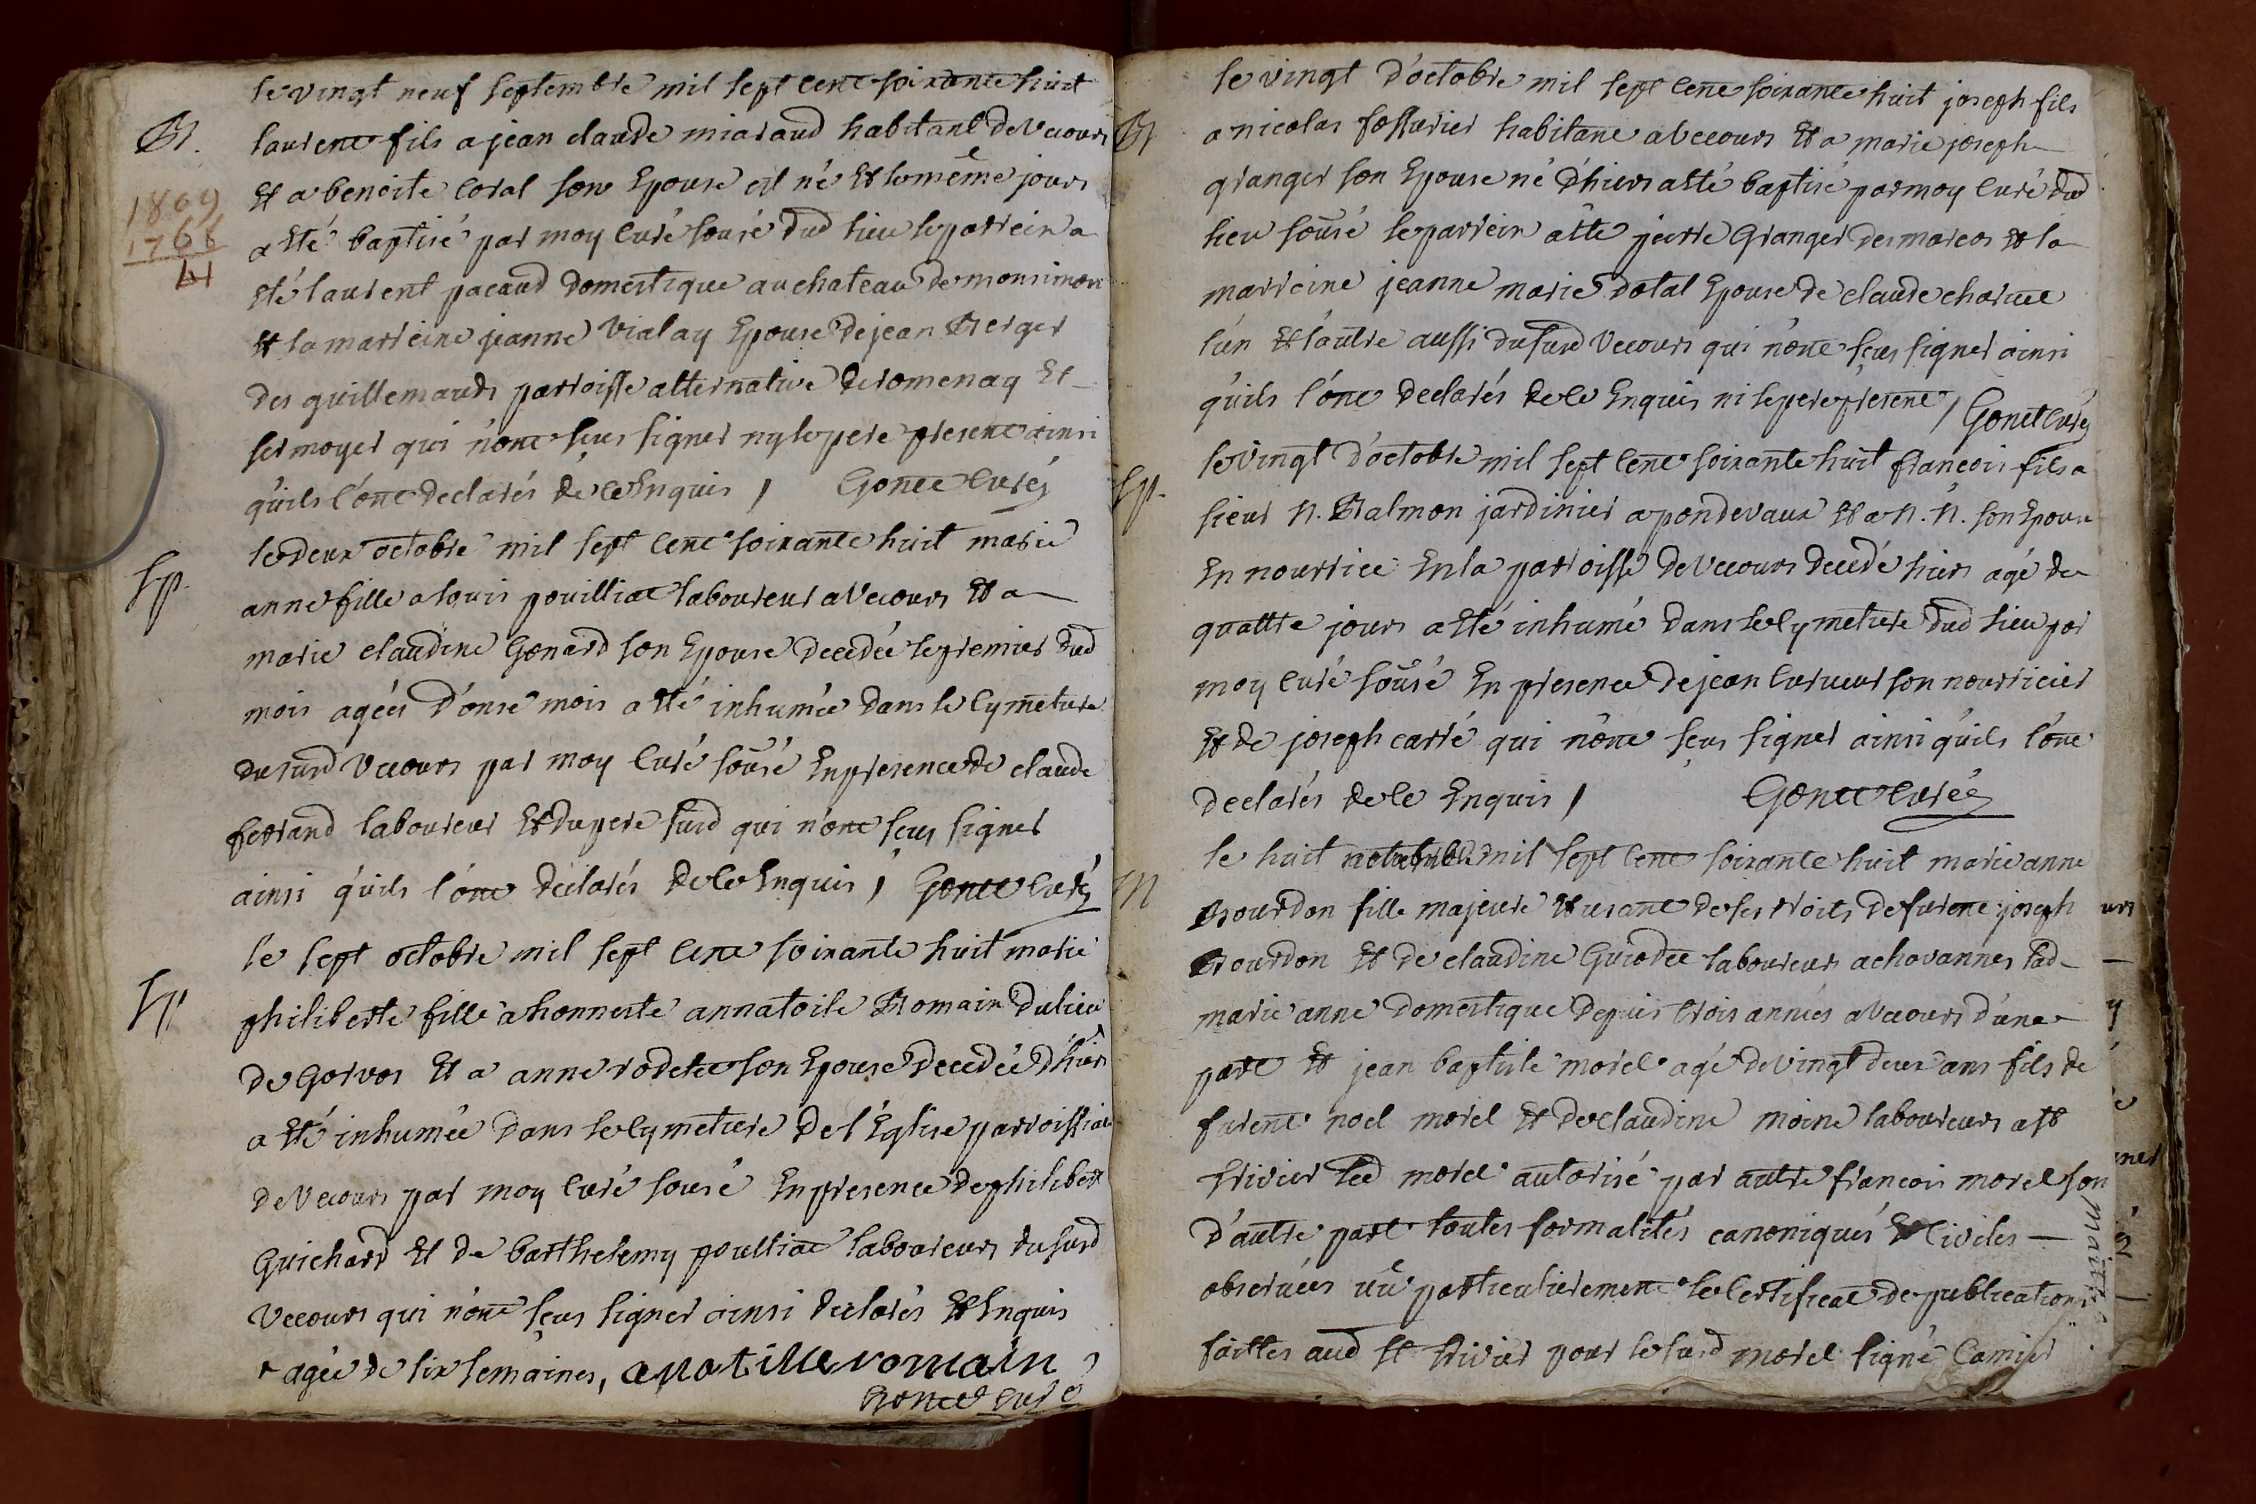 le vingt neuf septembre mil sept cent soixante huit
Bt.
laurent fils a jean claude miaraud habitant de Vecours
et a benoite Coral son Epouse est né et le même jours
1809
1768
41
a Eté baptisé par moy Curé sousé dud lieu le parrein a
eté laurent pacaud domestique au chateau de monsimon
et la marreine jeanne Vialay Epouse de jean Berger
des guillemauds parroisse alternative de romenay et
sermoyer qui n'ont sçus signer ny le pere present ainsi
qu'ils l'ont declarés de ce Enquis / Gonet Curé
le deux octobre mil sept cent soixante huit marie
Sp.
anne fille a louis pouilliat laboureur a Vecours et a
marie claudine Gonard son Epouse decedée le premier dud
mois agées d'onse mois a Eté inhumée dans le Cymetiere
du susd Vecours par moy Curé sousé En presence de claude
ferrand laboureur et du pere susd qui n'ont sçus signer
ainsi qu'ils l'ont declarés de ce Enquis / Gonet Curé
le sept octobre mil sept cent soixante huit marie
Sp
philiberte fille a honneste annatoile Romain du lieu
de Gorvos et a anne rodetet son Epouse decedée d'hiers
a Eté inhumée dans le Cymetiere de l'Eglise parroissiale
de Vecours par moy Curé sousé En presence de philibert
Guichard et de barthelemy poulliat laboureurs du susd
Vecours qui n'ont sçus signer ainsi declarés et Enquis
+ agée de six semaines, anatille romain
Gonet Curé
le vingt d'octobre mil sept cent soixante huit joseph fils
Bt
a nicolas fossurier habitant a Vecours et a marie joseph
granger son Epouse né d'hiers a Eté baptisé par moy Curé dud
lieu sousé le parrein a été pierre Granger des marcos et la
marreine jeanne marie dotal Epouse de claude charvet
l'un et l'autre aussi du susd Vecours qui n'ont sçus signer ainsi
qu'ils l'ont declarés de ce Enquis ni le pere present / Gonet Curé
le Vingt d'octobre mil sept cent soixante huit francois fils a
Sp.
sieur N. Balmon jardinier a pondevaux et a N. N. son Epouse
En nourrice En la parroisse de Vecours decedé hiers agé de
quattre jours a Eté inhumé dans le Cymetiere dud lieu par
moy Curé sousé En presence de jean Curveur son nourricier
et de joseph carré qui n'ont sçus signer ainsi qu'ils l'ont
declarés de ce Enquis / Gonet Curé
le huit mil sept cent soixante huit marie anne
M
Bourdon fille majeure et usant de ses droits de furent joseph
Bourdon et de claudine Guiodet laboureurs a chavannes lad
marie anne domestique depuis trois années a Vecours d'une
part et jean baptiste morel agé de vingt deux ans fils de
furent noel morel et de claudine moine laboureurs a st
trivier led morel autorisé par autre francois morel son
maittre
d'autre part toutes formalités canoniques et Civiles
observées vû particulierement le Certificat de publications
faittes aud st trivier pour le susd morel signé Camier